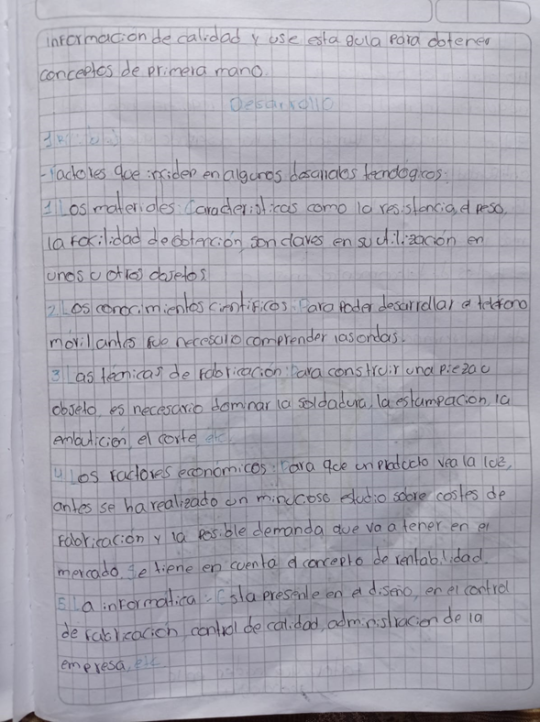 información de calidad y use esta guia para obtener
conceptos de primera mano.
Desarrollo
-factores que inciden en algunos desarrollos tecnológicos.
1 Los materiales: Características como la resistencia, el peso,
la facilidad de obtención, son claves en su utilización en
unos u otros objetos
2 Los conocimientos científicos: Para poder desarrollar el teléfono
movil antes fue necesario comprender las ondas.
3 Las técnicas de fabricación: Para construir una pieza u
objeto, es necesario dominar la soldadura, la estampacion, la
el corte etc
4 Los factores económicos: Para que un producto vea la luz,
antes se ha realizado un minucioso estudio sobre costes de
fabricación y la posible demanda que va a tener en el
mercado, se tiene en cuenta el concepto de rentabilidad.
5 La informatica: Esta presente en el diseño, en el control
de fabricación control de calidad, administracion de la
empresa, etc